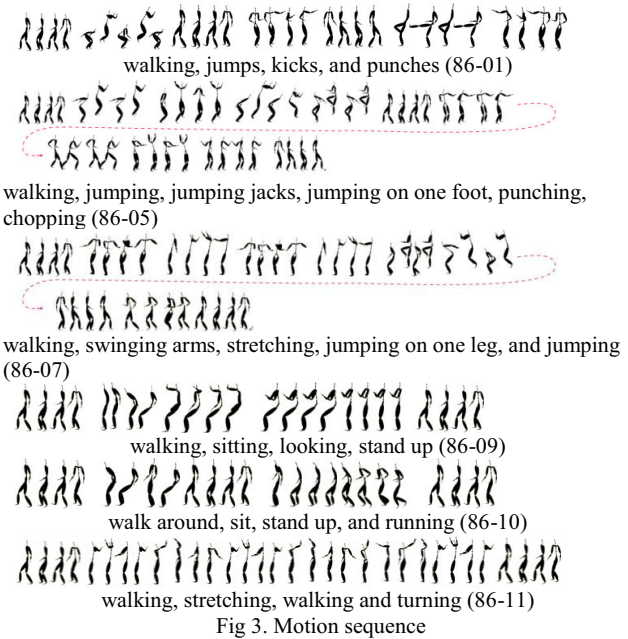 walking, jumps, kicks, and punches (86-01)
walking, jumping, jumping jacks, jumping on one foot, punching,
chopping (86-05)
walking, swinging arms, stretching, jumping on one leg, and jumping
(86-07)
walking, sitting, looking, stand up (86-09)
walk around, sit, stand up, and running (86-10)
walking, stretching, walking and turning (86-11)
Fig 3. Motion sequence